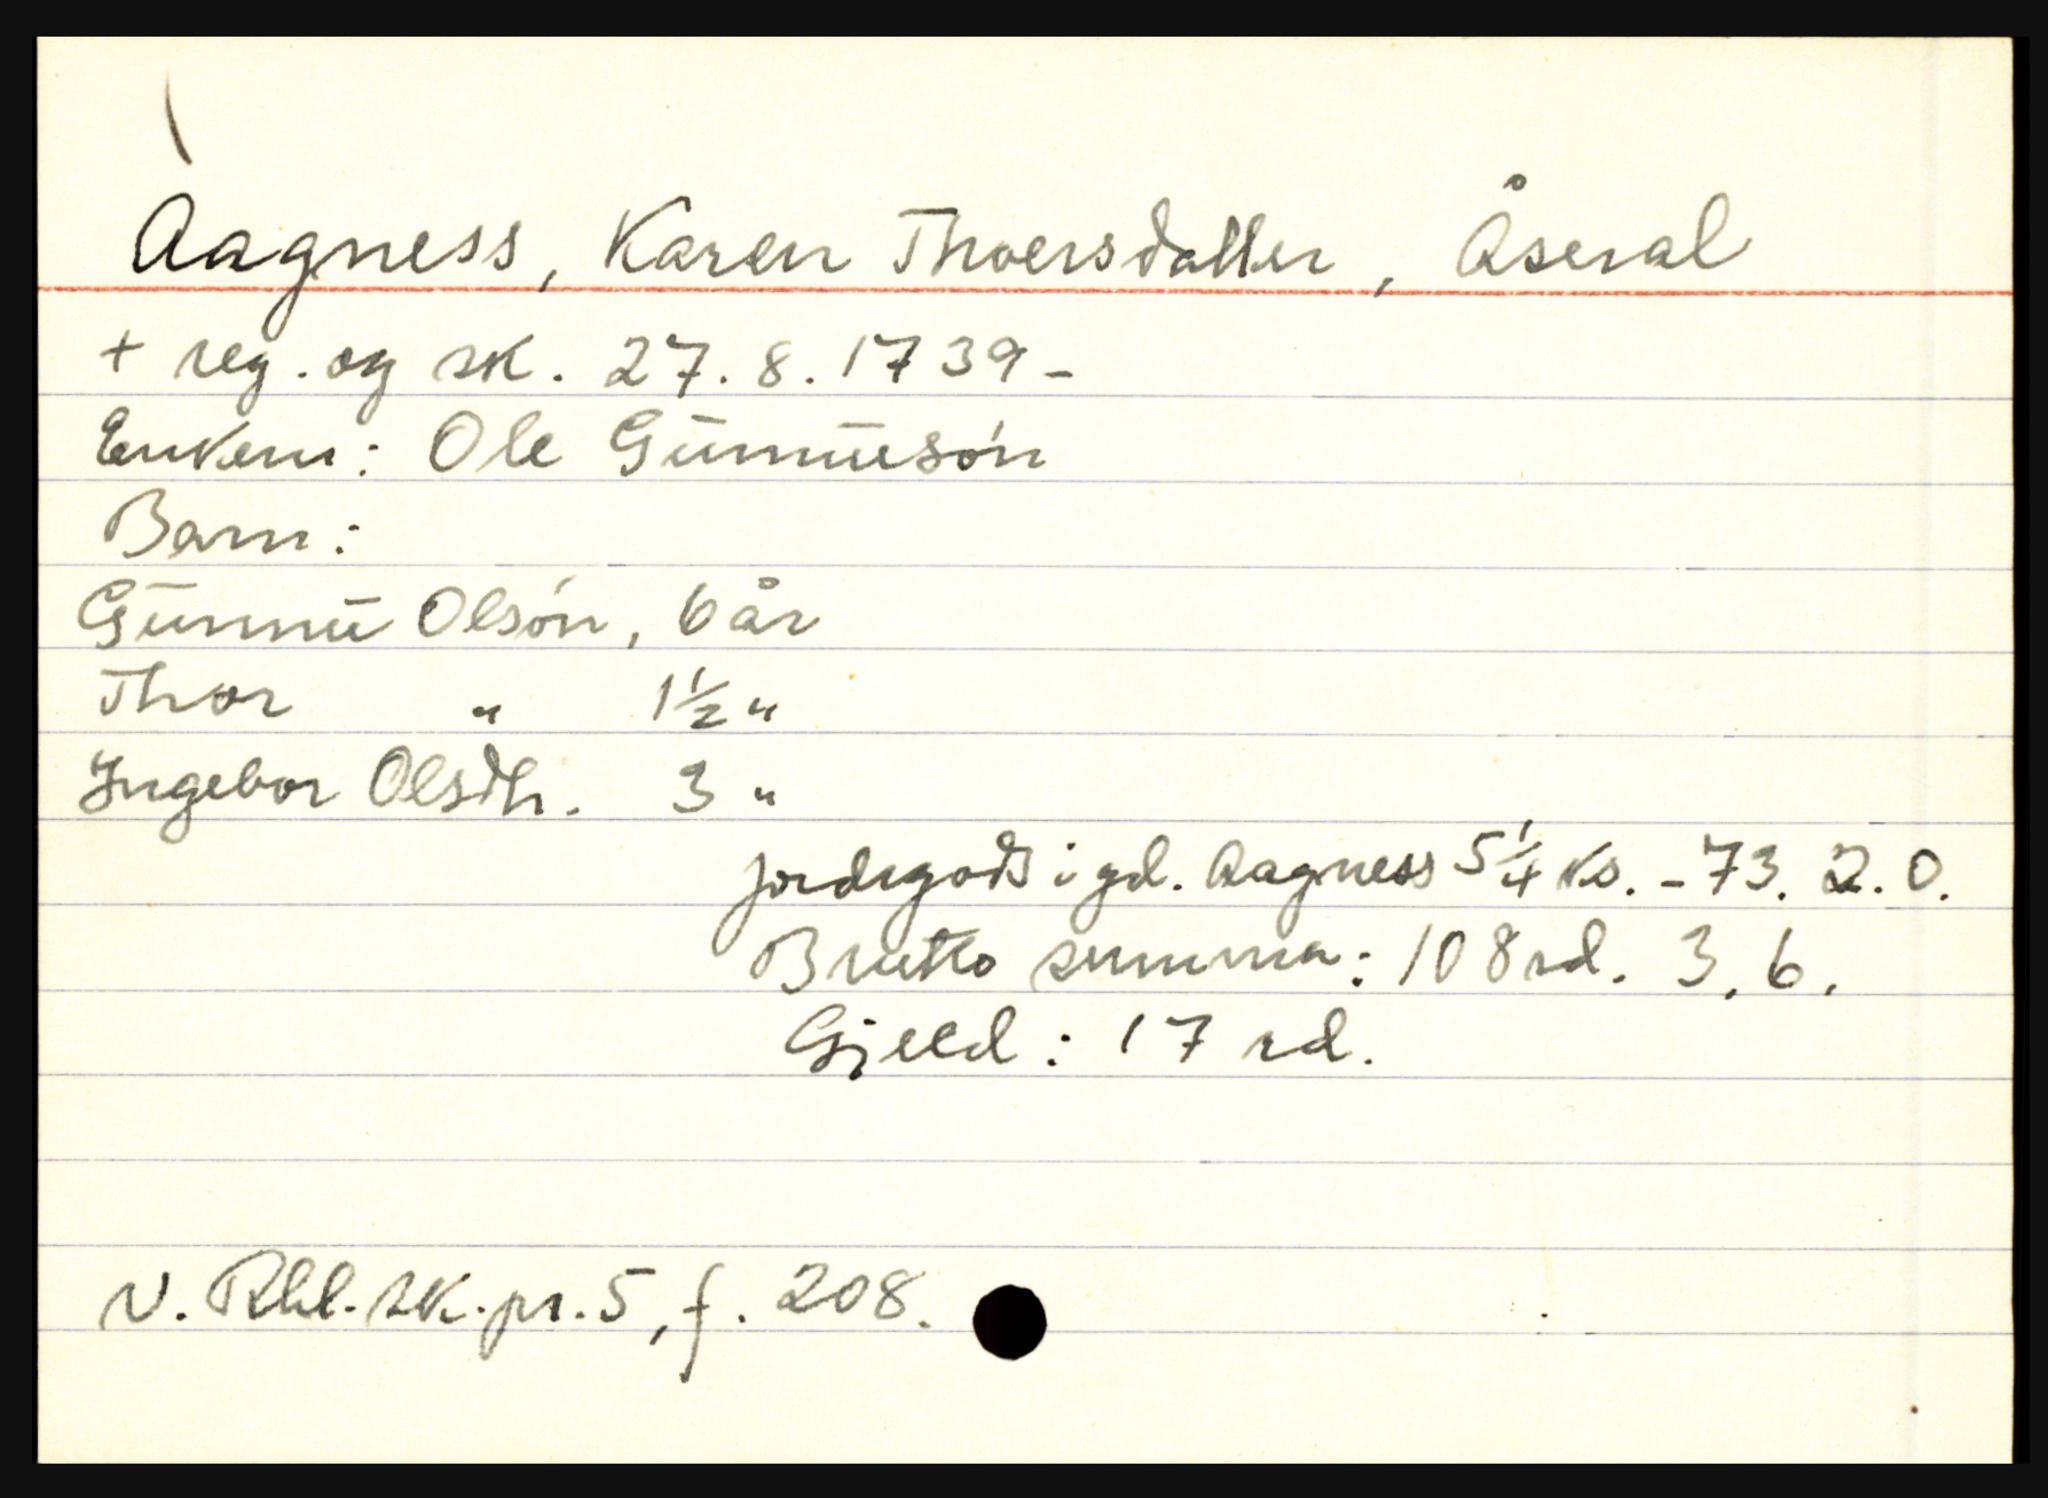 Aagness, Karen Thoersdatter, Åseral
+ reg. og sk. 27.8.1739-
Enkem: Ole Gunnuesón
Barn:
Gunnu Olsón, 6 år
Thor " 1½ "
Ingebor Olsdtr. 3 "
jordegods i gd. Aagness 5¼ ks. - 73. 2. 0.
Brutto summa: 108 rd. 3. 6.
Gjeld: 17 rd.
N. Rbl. sk. pr. 5, f. 208.